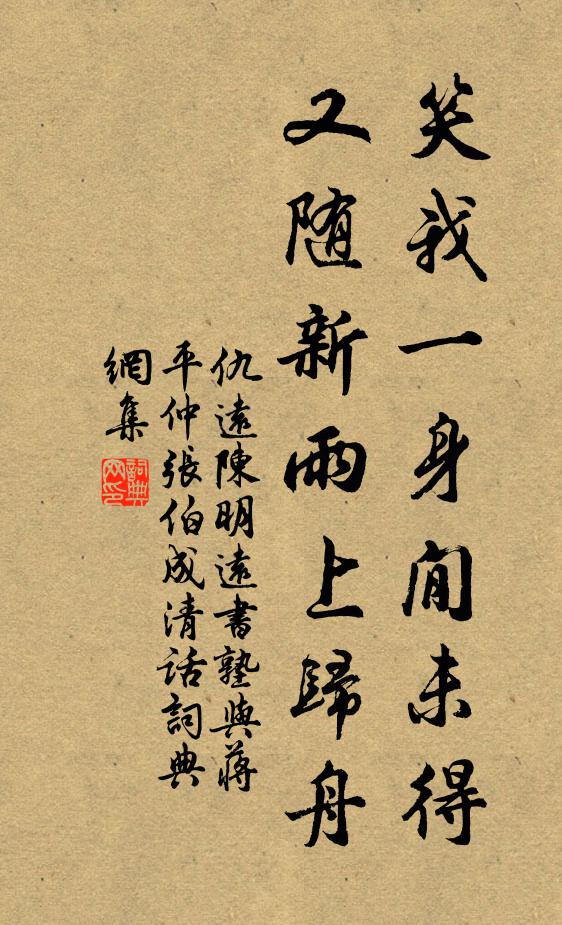 笑我一身閒未得
又随新雨上歸舟
仇遠陳明遠書塾與蔣
平仲張伯成清話詞典
網集
詞典網印